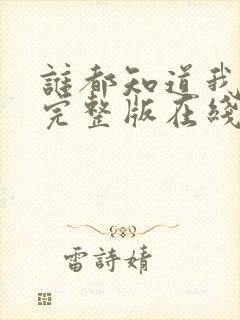 誰都知道我
完整版在綫
雷詩婧